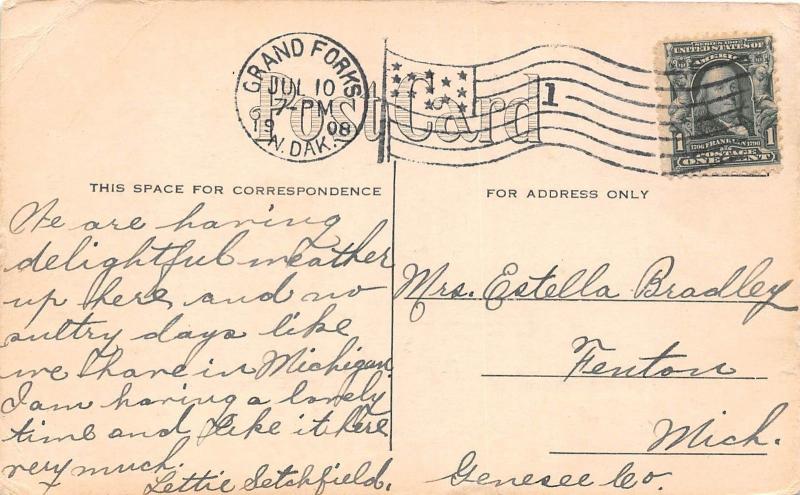 GRAND FORKS
JUL 10
7-PM
1908
N. DAK.
1
SERIES 1902
UNITED STATES OF
AMERICA
1 1
1706 FRANKLIN 1790
POSTAGE
ONE CENT
Post Card
THIS SPACE FOR CORRESPONDENCE
FOR ADDRESS ONLY
We are having
delightful weather
up here and no
sultry days like
we have in Michigan.
I am having a lovely
time and like it here
very much.
Lettie Setchfield.
Mrs. Estella Bradley
Fenton
Mich.
Genesee Co.